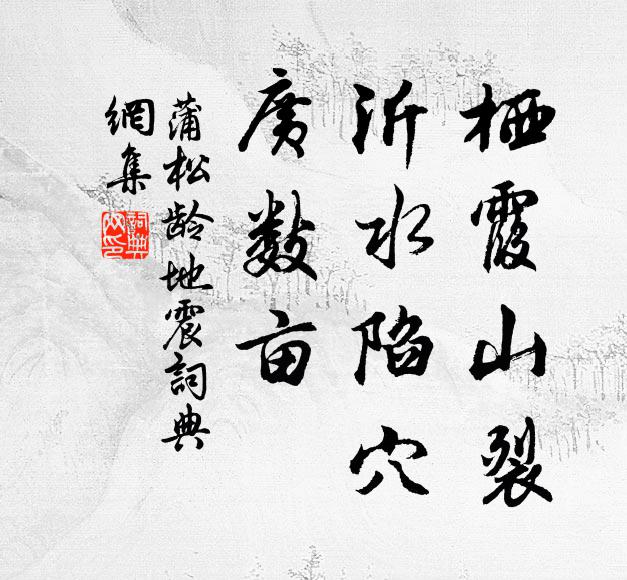 栖霞山裂
沂水陷穴
廣數亩
蒲松龄地震詞典
網集
詞典网印